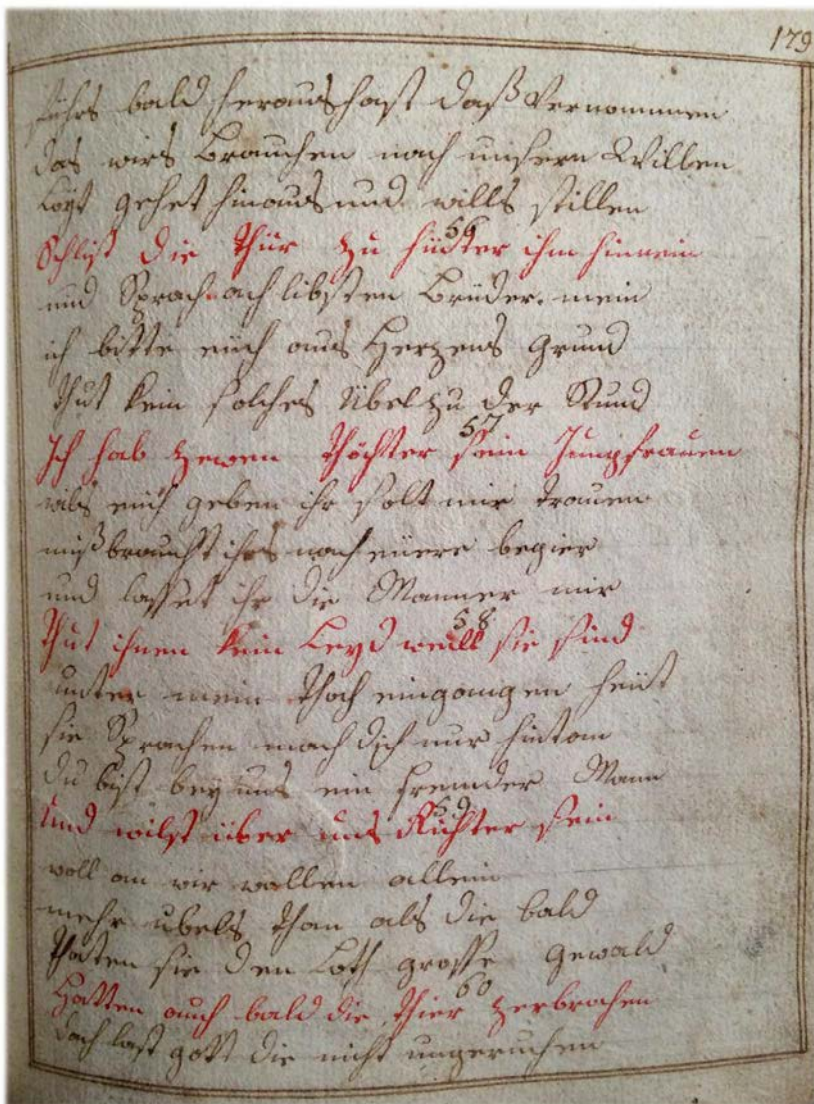 179
führs bald heraus hast daß Vernommen
das wirs Brauchen nach unsern Willen
Loht gehet hinaus und wills stillen
56
Schlist die Thür zu hinter ihm hinnein
und Sprach ach libsten Brüder mein
ich bitte eüch aus Herzens grund
Thut kein solches Übel zu der Stund
57
Ich hab zween Thöchter sein Jungfrauen
wils eüch geben ihr solt mir trauen
mißbraucht ihrs nach eüere begier
und lasset ihr die Manner mir
58
Thut ihnen kein Leyd weill sie sind
unter mein Thach eingangen heüt
sie Sprachen mach dich nur hintan
du bist bey uns ein fremder Mann
59
Und wilst über uns Richter sein
woll an wir wollen allein
mehr ubels than als die bald
Thaten sie den Loth grosse gewald
60
Hatten auch bald die Thier zerbrochen
doch last gott die nicht ungerochen